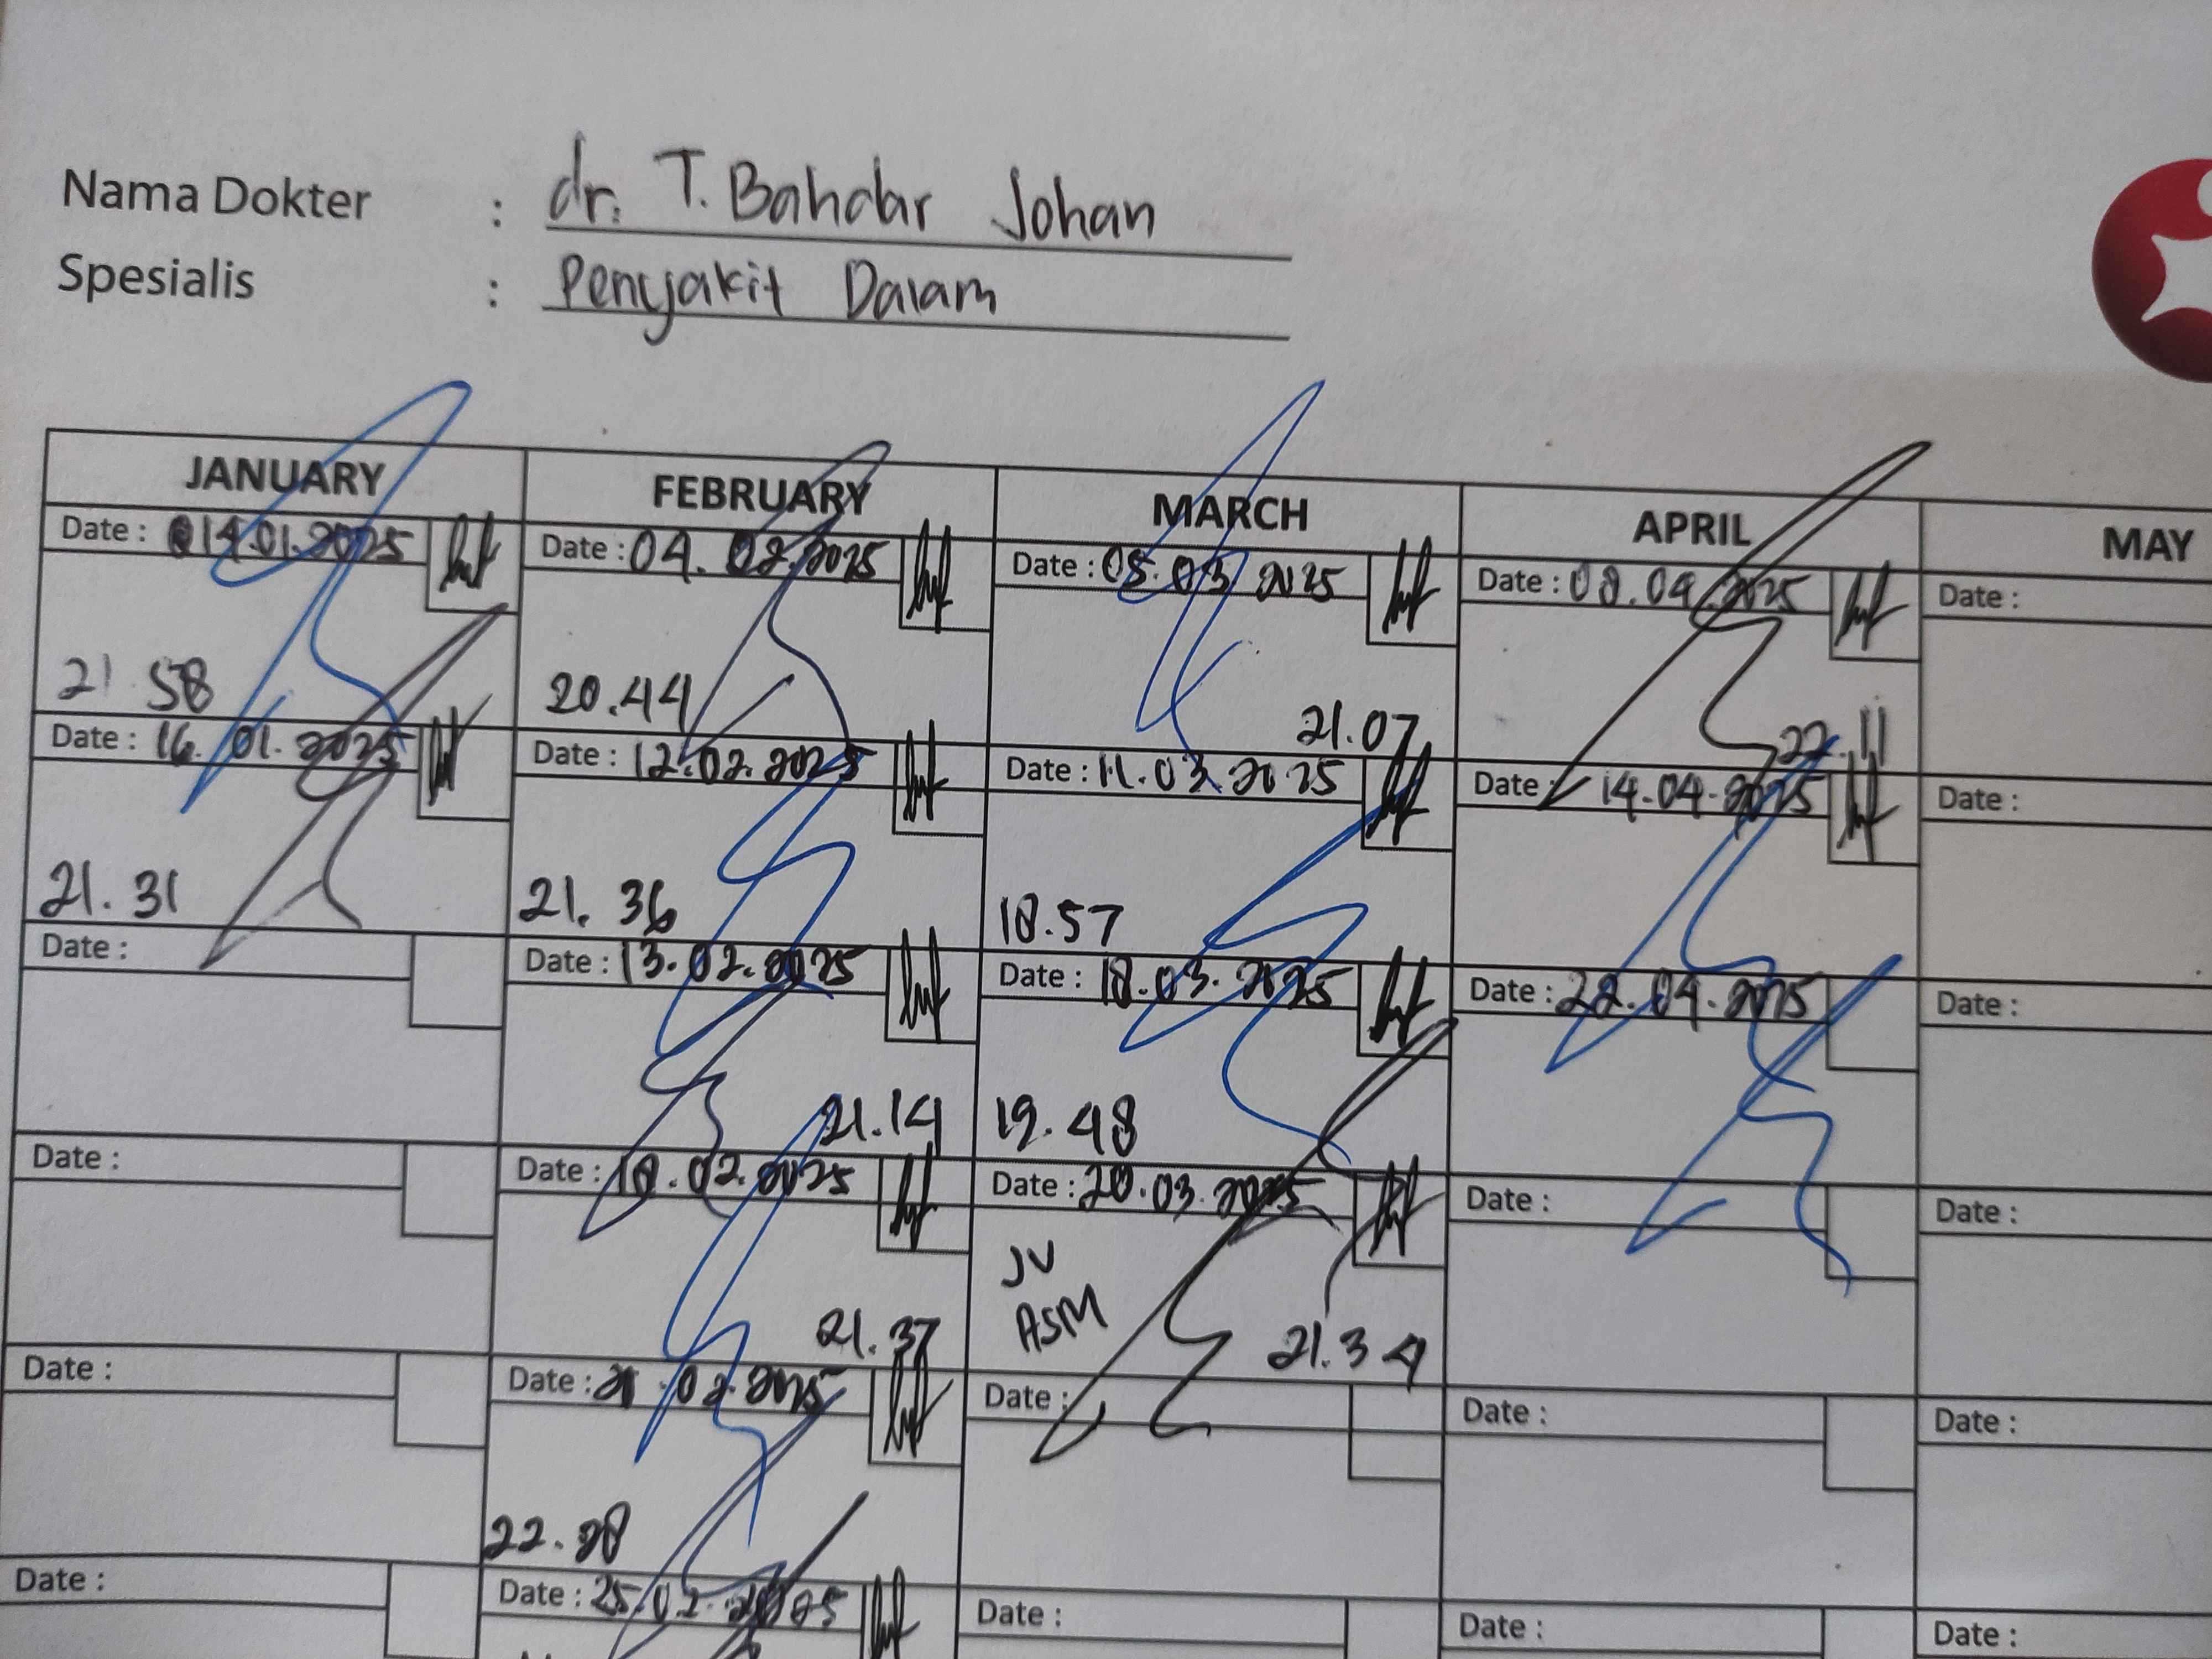 Nama Dokter : dr. T. Bahdar Johan
Spesialis : Penyakit Dalam
JANUARY FEBRUARY MARCH APRIL MAY
Date : 14.01.2025 Date : 04.02.2025 Date : 05.03.2025 Date : 08.04.2025 Date :
21 58 20.44 21.07 22.11
Date : 16.01.2025 Date : 12.02.2025 Date : 11.03.2025 Date : 14.04.2025 Date :
21.31 21.36 18.57
Date : Date : 13.02.2025 Date : 18.03.2025 Date : 22.04.2025 Date :
21.14 19.48
Date : Date : 18.02.2025 Date : 20.03.2025 Date : Date :
JV
ASM
21.37 21.34
Date : Date : 21.02.2025 Date : Date : Date :
22.28
Date : Date : 25.02.2025 Date : Date : Date :